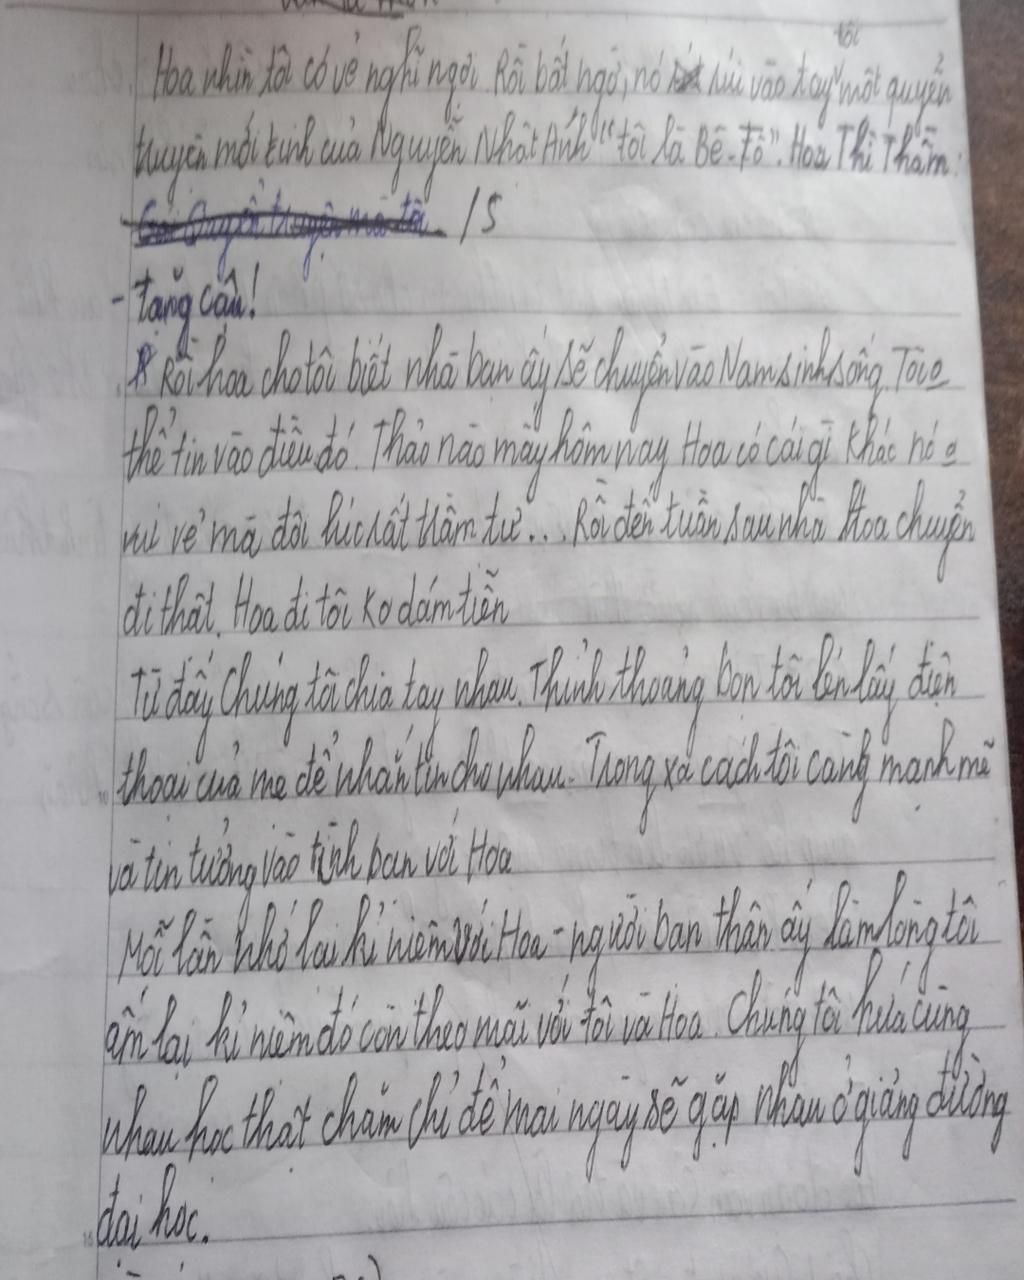 tôi
Hoa nhìn tôi có vẻ nghĩ ngợi. Rồi bất ngờ, nó rút rúi vào tay một quyển
truyện mới tinh của Nguyễn Nhật Ánh "tôi là Bê-Tô". Hoa Thì Thầm:
Quyển truyện mà tôi /S
- tặng cậu!
Rồi hoa cho tôi biết nhà bạn ấy sẽ chuyển vào Nam sinh sống. Tôi o
thể tin vào điều đó. Thảo nào mấy hôm nay Hoa có cái gì khác nó o
vui vẻ mà đôi lúc rất trầm tư... Rồi đến tuần sau nhà Hoa chuyển
đi thật. Hoa đi tôi ko dám tiễn
Từ đấy Chúng tôi chia tay nhau. Thỉnh thoảng bọn tôi lén lấy điện
thoại của mẹ để nhắn tin cho nhau. Trong xa cách tôi càng mạnh mẽ
và tin tưởng vào tình bạn với Hoa
Mỗi lần nhớ lại kỉ niệm với Hoa - người bạn thân ấy làm lòng tôi
ấm lại kỉ niệm đó còn theo mãi với tôi và Hoa. Chúng tôi hứa cùng
nhau học thật chăm chỉ để mai ngày sẽ gặp nhau ở giảng đường
đại học.